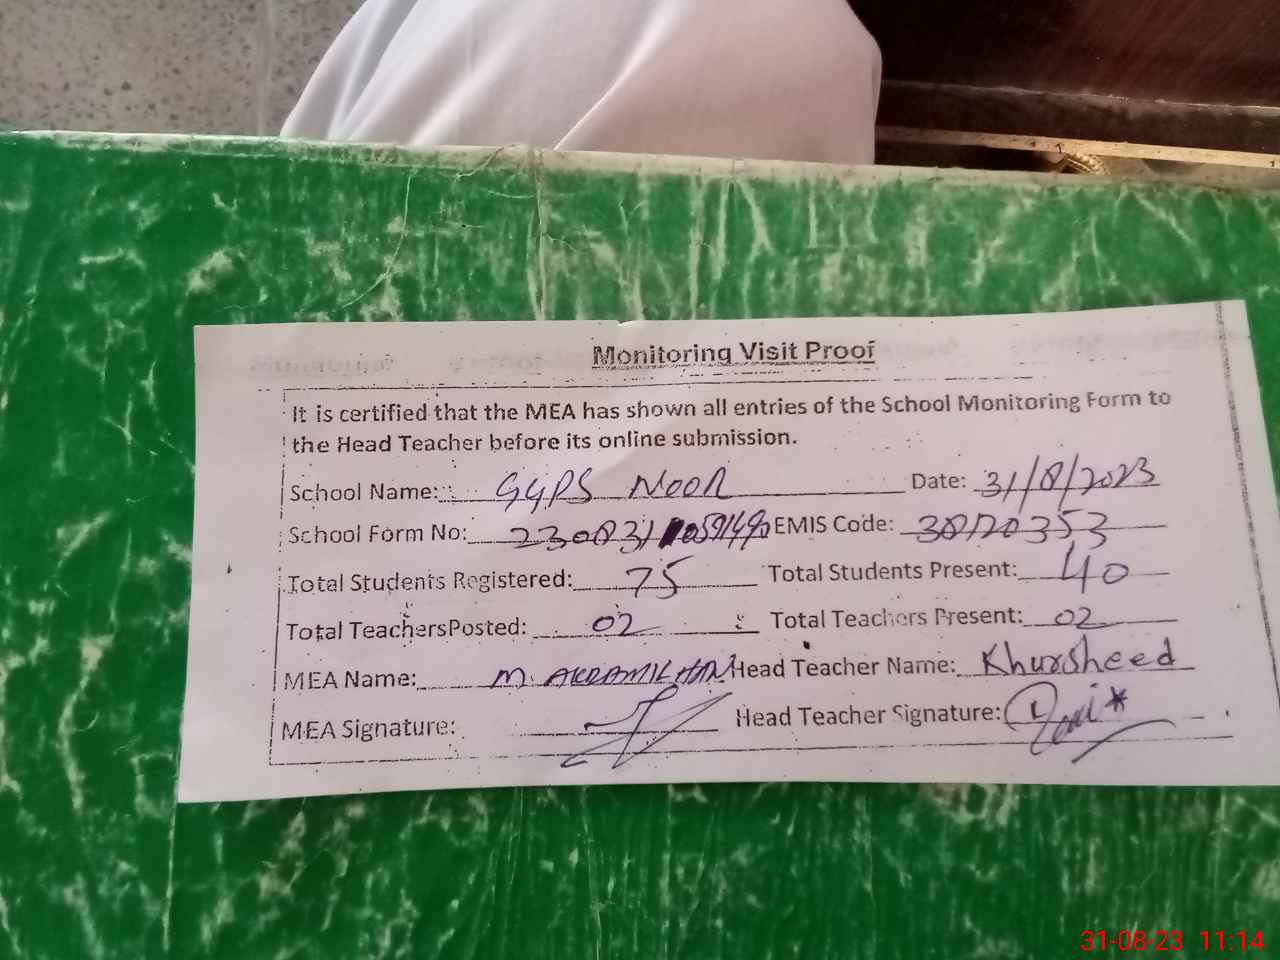 Monitoring Visit Proof
It is certified that the MEA has shown all entries of the School Monitoring Form to
the Head Teacher before its online submission.
School Name: GGPS NOOR Date: 31/8/2023
School Form No: EMIS Code: 38120353
Total Students Registered: 75 Total Students Present: 40
Total TeachersPosted: 02 Total Teachers Present: 02
MEA Name: M. AKRAM KHAN Head Teacher Name: Khursheed
MEA Signature: Head Teacher Signature:
31-08-23 11:14